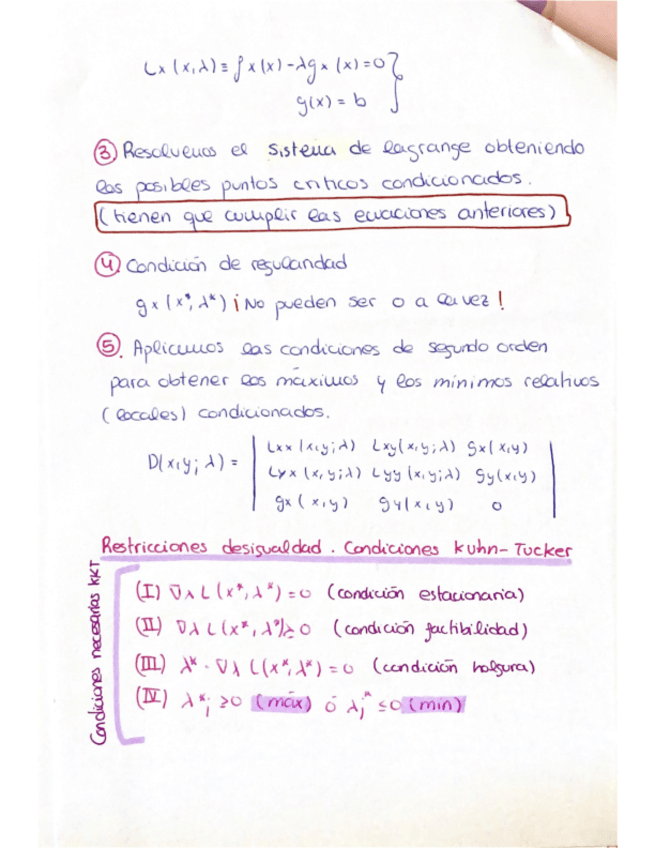 Lx (x,λ) ≡ ƒx(x) - λgx (x) = 0
g(x) = b
③ Resolvemos el sistema de lagrange obteniendo
los posibles puntos criticos condicionados.
(tienen que cumplir las ecuaciones anteriores)
④ Condición de regularidad
gx (x*, λ*) ¡No pueden ser 0 a la vez!
⑤. Aplicamos las condiciones de segundo orden
para obtener los máximos y los mínimos relativos
(locales) condicionados.
Lxx (x,y;λ) Lxy(x,y;λ) gx(x,y)
D(x,y;λ) = Lyx (x,y;λ) Lyy (x,y;λ) gy(x,y)
gx (x,y) gy(x,y) 0
Restricciones desigualdad. Condiciones Kuhn-Tucker
Condiciones necesarias KKT
(I) ∇x L (x*, λ*) = 0 (condición estacionaria)
(II) ∇λ L (x*, λ*) ≥ 0 (condición factibilidad)
(III) λ* · ∇λ L(x*, λ*) = 0 (condición holgura)
(IV) λ*j ≥0 (máx) ó λj* ≤0 (min)